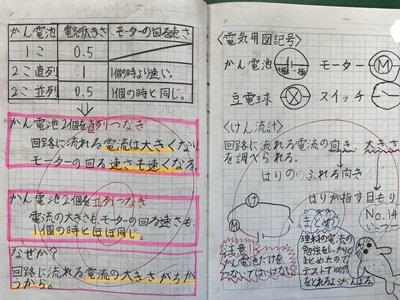 かん電池 電流の大きさ モーターの回る速さ
1こ 0.5
2こ直列 1 1個の時より速い。
2こ並列 0.5 1個の時と同じ。
かん電池2個を直列つなぎ
回路に流れる電流は大きくなり、
モーターの回る速さも速くなる。
かん電池2個を並列つなぎ
電流の大きさもモーターの回る速さも、
1個の時とほぼ同じ。
なぜか?
回路に流れる電流の大きさがちがうから。
〈電気用図記号〉
かん電池 モーター M
豆電球 スイッチ
〈けん流計〉
回路に流れる電流の向き 大きさ
を調べられる。
はりのふれる向き
はりが指す目もり
注意!
かん電池だけを
つないではいけない
まとめ
No.14
理科の電流の
勉強をしっかりと
まとめたので
テストで100点
をとれるようがんばる。